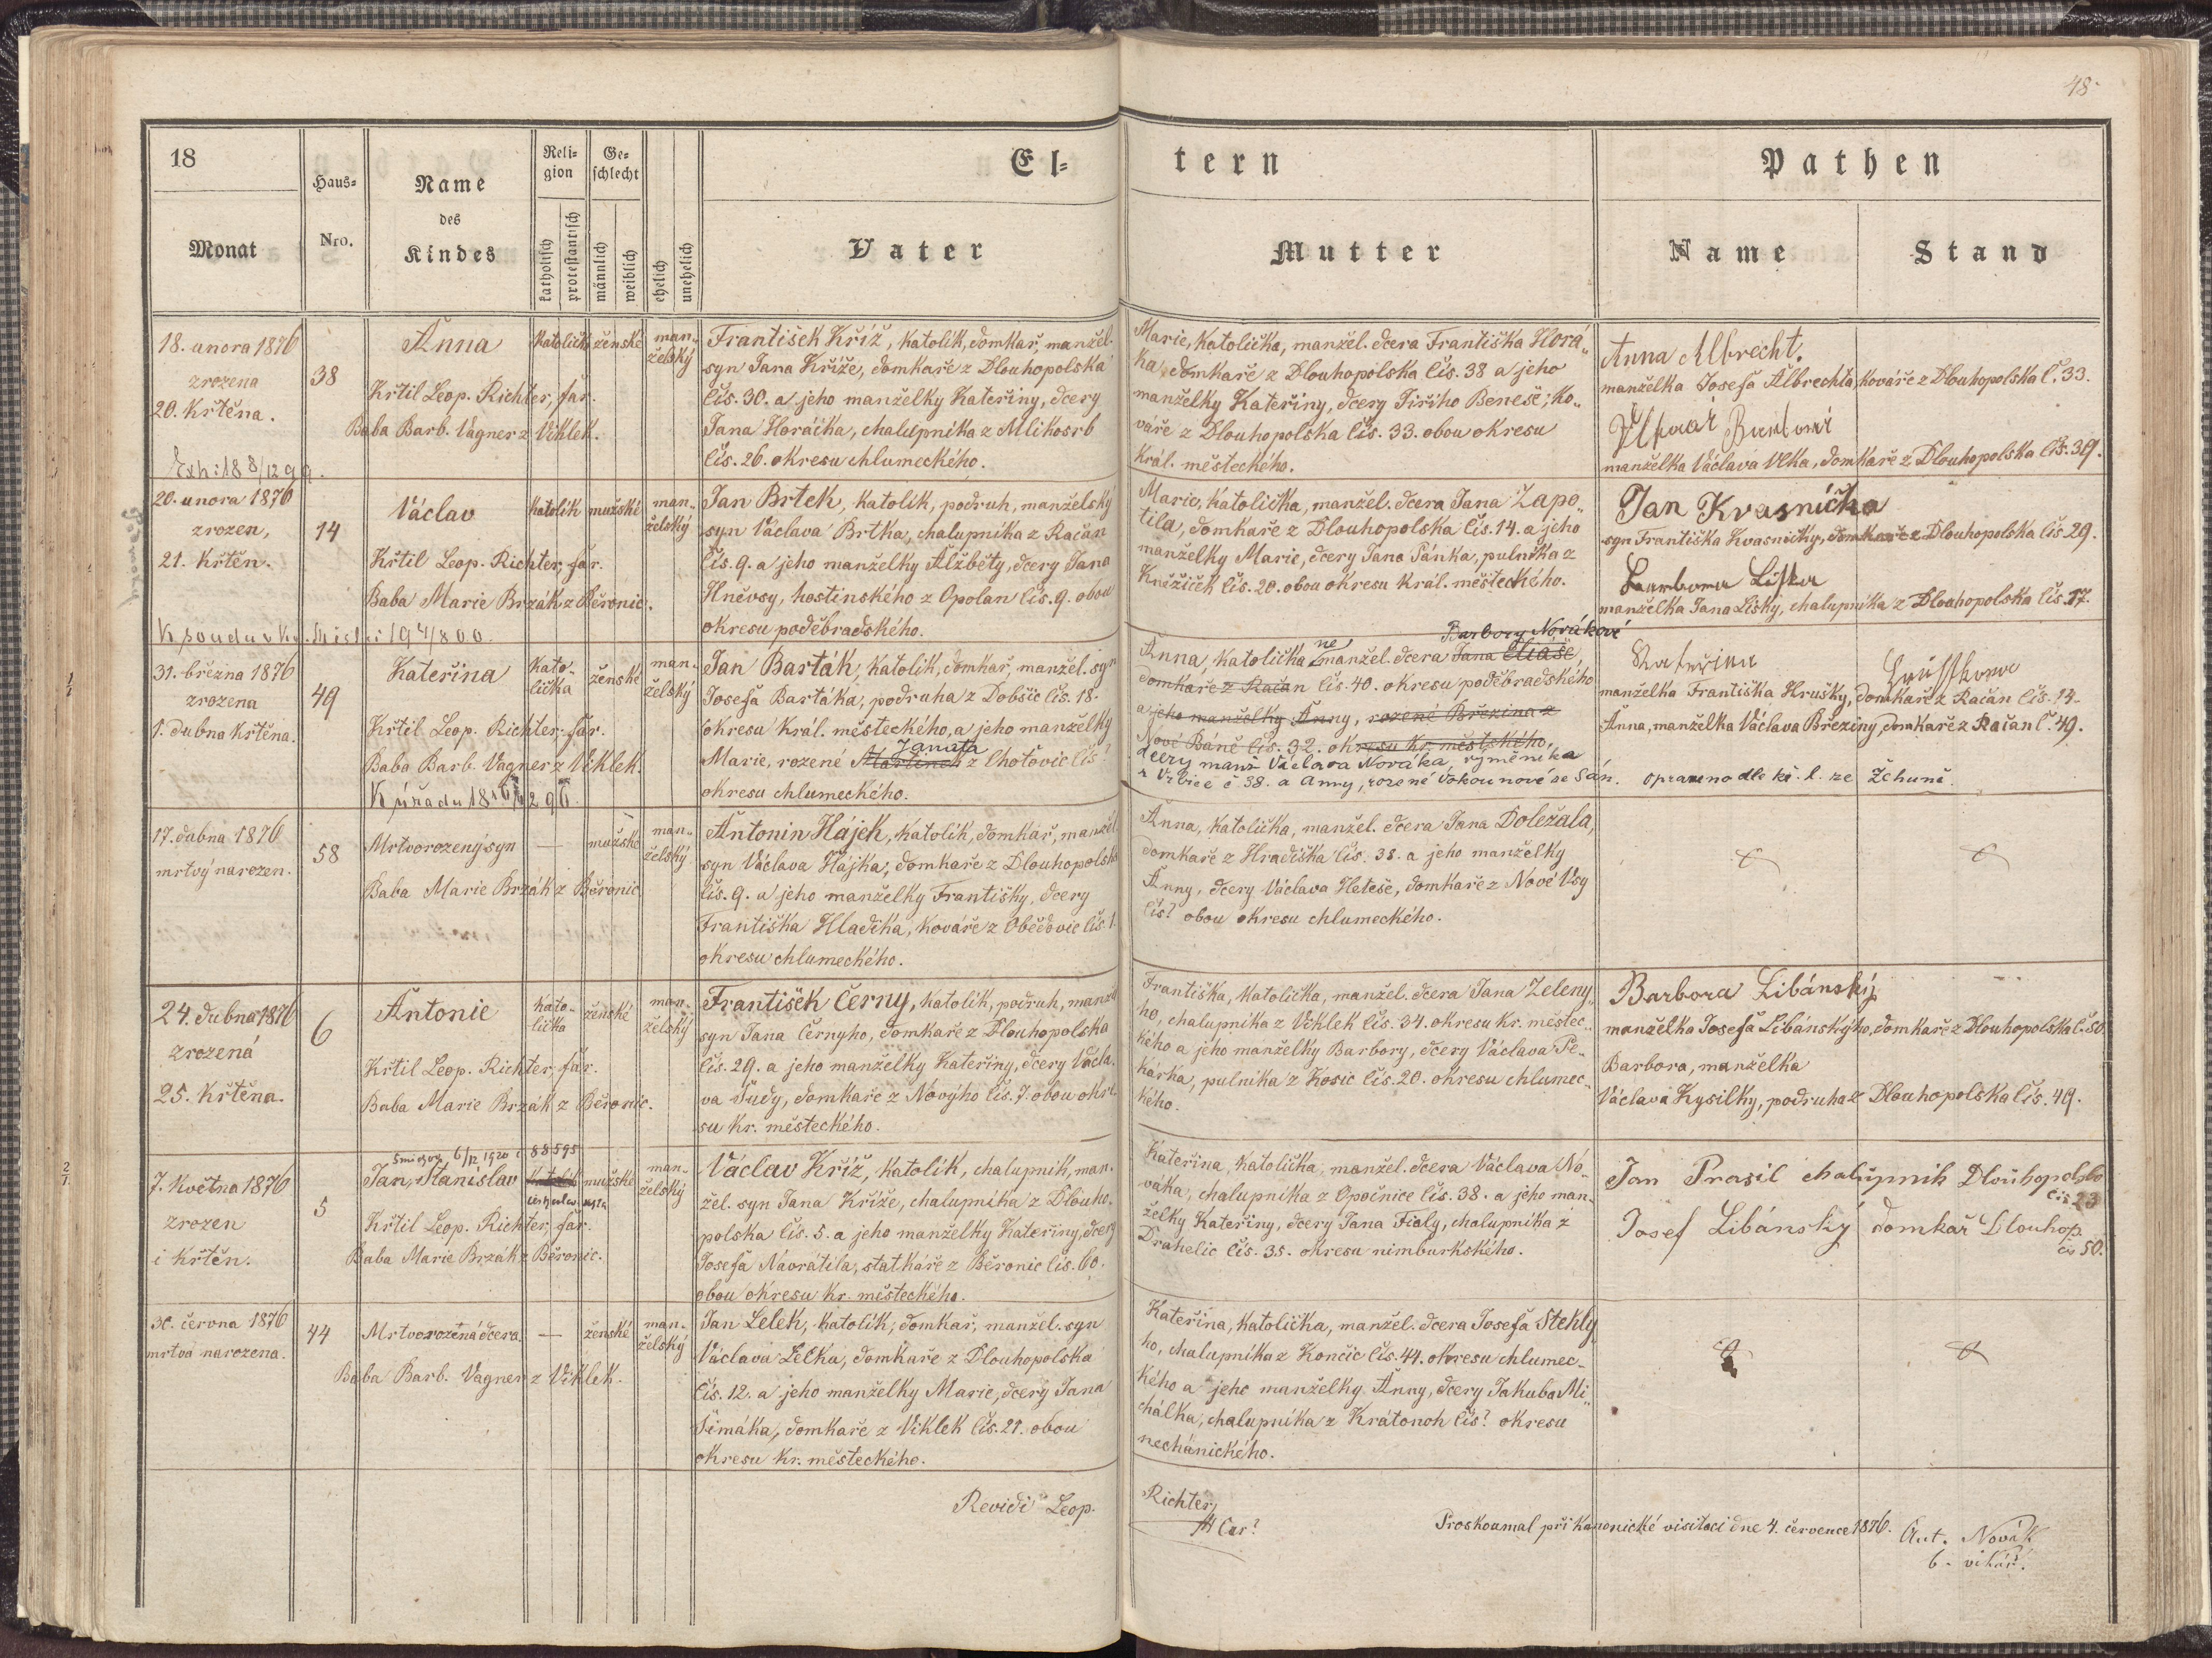 48.
18
Monat
Haus-
Nro.
Name
des
Kindes
Reli-
gion
katholisch
protestantisch
Ge-
schlecht
männlich
weiblich
ehelich
unehelich
El-
tern
Vater
Mutter
Pathen
Name
Stand
18. unora 1876
zrozena
20. Křtěna.
38
Anna
Křtil Leop. Richter, far.
Baba Barb. Vagner z Viklek.
ženské
man-
želský
František Kříž, katolík, domkař, manžel.
syn Jana Kříže, domkaře z Dlouhopolska
čís. 30. a jeho manželky Kateřiny, dcery
Jana Horáčka, chalupníka z Mlikosrb
čís. 26. okresu chlumeckého.
Marie, katolička, manžel. dcera Františka Horá-
ka, domkaře z Dlouhopolska čís. 38 a jeho
manželky Kateřiny, dcery Jiřího Beneše, ko-
váře z Dlouhopolska čís. 33. obou okresu
král. městeckého.
Anna Albrecht.
manželka Josefa Albrechta, kováře z Dlouhopolska č. 33.
manželka Václava Vlka, domkaře z Dlouhopolska čís. 39.
20. unora 1876
zrozen,
21. křtěn.
14
Václav
Křtil Leop. Richter, far.
Baba Marie Brzák z Běronic.
katolík
mužské
man-
želský
Jan Brtek, katolík, podruh, manželský
syn Václava Brtka, chalupníka z Račan
čís. 9. a jeho manželky Alžběty, dcery Jana
Hněvsy, hostinského z Opolan čís. 9. obou
okresu poděbradského.
Marie, katolička, manžel. dcera Jana Zapo-
tila, domkaře z Dlouhopolska čís. 14. a jeho
manželky Marie, dcery Jana Pánka, pulníka z
Kněžiček čís. 20. obou okresu král. městeckého.
Jan Kvasnička
syn Františka Kvasničky, domkaře z Dlouhopolska čís 29.
Barbora Liška
manželka Jana Lišky, chalupníka z Dlouhopolska čís. 17.
31. března 1876
zrozena
1. dubna křtěna.
49
Kateřina
Křtil Leop. Richter, far.
Baba Barb. Vagner z Viklek.
kato-
lička
ženské
man-
želský
Jan Barták, katolík, domkař, manžel. syn
Josefa Bartáka, podruha z Dobšic čís. 18.
okresu král. městeckého, a jeho manželky
Janata
Marie, rozené Martinek z Chotovic čís?
okresu chlumeckého.
Barbory Novákové
Anna, katolička ne manžel. dcera Jana Eliáše
domkaře z Račan čís. 40. okresu poděbradského
a jeho manželky Anny, rozené Březina z
Nové Báně čís. 32. okresu kr. městského,
dcery manž Václava Nováka, výměníka
z Vrbice č 38. a Anny, rozené Vokounové ze Sán.
Kateřina
manželka Františka Hrušky, domkaře z Račan čís. 14.
Anna, manželka Václava Březiny, domkaře z Račan č. 49.
opraveno dle kř. l. ze Žehuně.
17. dubna 1876
mrtvý narozen.
58
Mrtvorozený syn
Baba Marie Brzák z Běronic
—
mužské
man-
želský
Antonin Hájek, katolík, domkář, manžel.
syn Václava Hájka, domkaře z Dlouhopolska
čís. 9. a jeho manželky Františky, dcery
Františka Hladíka, kováře z Obědovic čís. 1.
okresu chlumeckého.
Anna, katolička, manžel. dcera Jana Doležala,
domkaře z Hradiška čís. 38. a jeho manželky
Anny, dcery Václava Heteše, domkaře z Nové Vsy
čís? obou okresu chlumeckého.
24. dubna 1876
zrozená
25. křtěna.
6
Antonie
Křtil Leop. Richter, far.
Baba Marie Brzák z Běronic.
kato-
lička
ženské
man-
želský
František Černy, katolík, podruh, manžel
syn Jana Černyho, domkaře z Dlouhopolska
čís. 29. a jeho manželky Kateřiny, dcery Václa-
va Sudy, domkaře z Novýho čís. 7. obou okre-
su kr. městeckého.
Františka, katolička, manžel. dcera Jana Zeleny-
ho, chalupníka z Viklek čís. 34. okresu kr. městec-
kého a jeho manželky Barbory, dcery Václava Pe-
kárka, pulníka z Kosic čís. 20. okresu chlumec-
kého.
Barbora Libánský
manželka Josefa Libánskýho, domkaře z Dlouhopolska č. 50
Barbora, manželka
Václava Kysilky, podruha z Dlouhopolska čís. 49.
7. května 1876
zrozen
i křtěn.
5
Smíchov 6/12 1920 č 88595
Jan, Stanislav
Křtil Leop. Richter, far.
Baba Marie Brzák z Běronic.
katolík
mužské
man-
želský
Václav Kříž, katolík, chalupník, man-
žel. syn Jana Kříže, chalupníka z Dlouho-
polska čís. 5. a jeho manželky Kateřiny, dcery
Josefa Navrátila, statkáře z Běronic čís. 60.
obou okresu kr. městeckého.
Kateřina, katolička, manžel. dcera Václava No-
váka, chalupníka z Opočnice čís. 38. a jeho man-
želky Kateřiny, dcery Jana Fialy, chalupníka z
Drahelic čís. 35. okresu nimburkského.
Jan Prasil chalupnik Dlouhopolsko
čis 23
Josef Libánský domkař Dlouhop.
čis 50.
30. června 1876
mrtvá narozena.
44
Mrtvorozená dcera.
Baba Barb. Vagner z Viklek.
—
ženské
man-
želský
Jan Lelek, katolík, domkař, manžel. syn
Václava Lelka, domkaře z Dlouhopolska
čís. 12. a jeho manželky Marie, dcery Jana
Šimáka, domkaře z Viklek čís. 21. obou
okresu kr. městeckého.
Kateřina, katolička, manžel. dcera Josefa Stekly-
ho, chalupníka z Končic čís. 44. okresu chlumec-
kého a jeho manželky Anny, dcery Jakuba Mi-
chálka, chalupníka z Krátonoh čís? okresu
nechánického.
Revidi Leop. Richter,
Cur?
Proskoumal při kanonické visitaci dne 4. července 1876.
Ant. Novák
b. vikář.